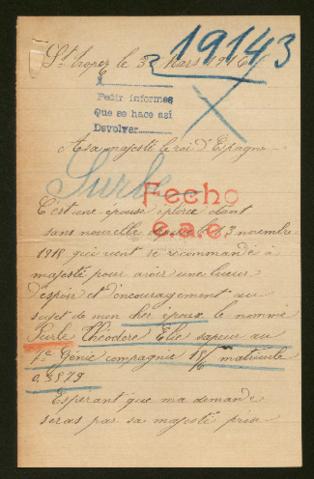 St Tropez le 3 Mars 1916
19143
Pedir informes
Que se hace así
Devolver
A sa majesté le roi d'Espagne
Surle
Fecho
e.a.e.
C'est une épouse éplorée étant
sans nouvelle depuis le 3 novembre
1915 qui vient se recommandé à
majesté pour avoir une lueur
d'espoir et d'encouragement au
sujet de mon cher époux le nommé
Surle Théodore Élie sapeur au
génie compagnie matricule
03879
Espérant que ma demande
seras par sa majesté prise